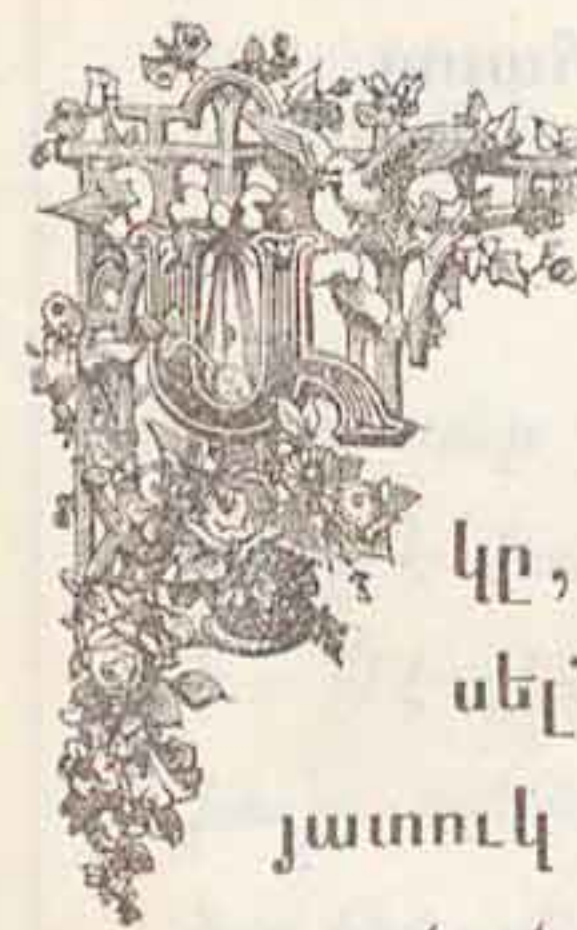 Ա
կը,
սել
յատուկ